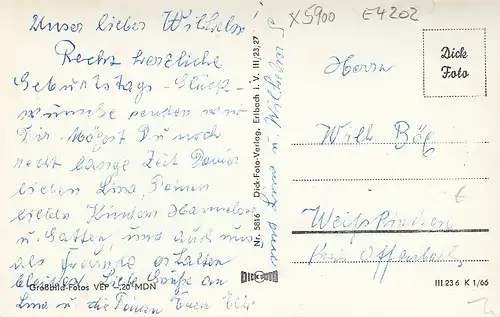 Unser lieber Wilhelm
Recht herzliche
Geburtstags-Glück-
wünsche senden wir
Dir. Mögest Du noch
recht lange Zeit Deiner
lieben Lina, Deinen
lieben Kindern Hannelore
u. Gatten, und auch uns
als Freunde erhalten
bleiben. Liebe Grüße an
Lina u die Deinen Eure
und Lina u Wilhelm
Großbild-Fotos VEP -,20 MDN
Nr. 5816 Dick-Foto-Verlag, Erlbach i. V. III/23,27
DICK FOTO
X5900 E4202
Dick
Foto
Herrn
Wilh
Weißkirchen
Krs. Offenbach
III 23 6 K 1/66